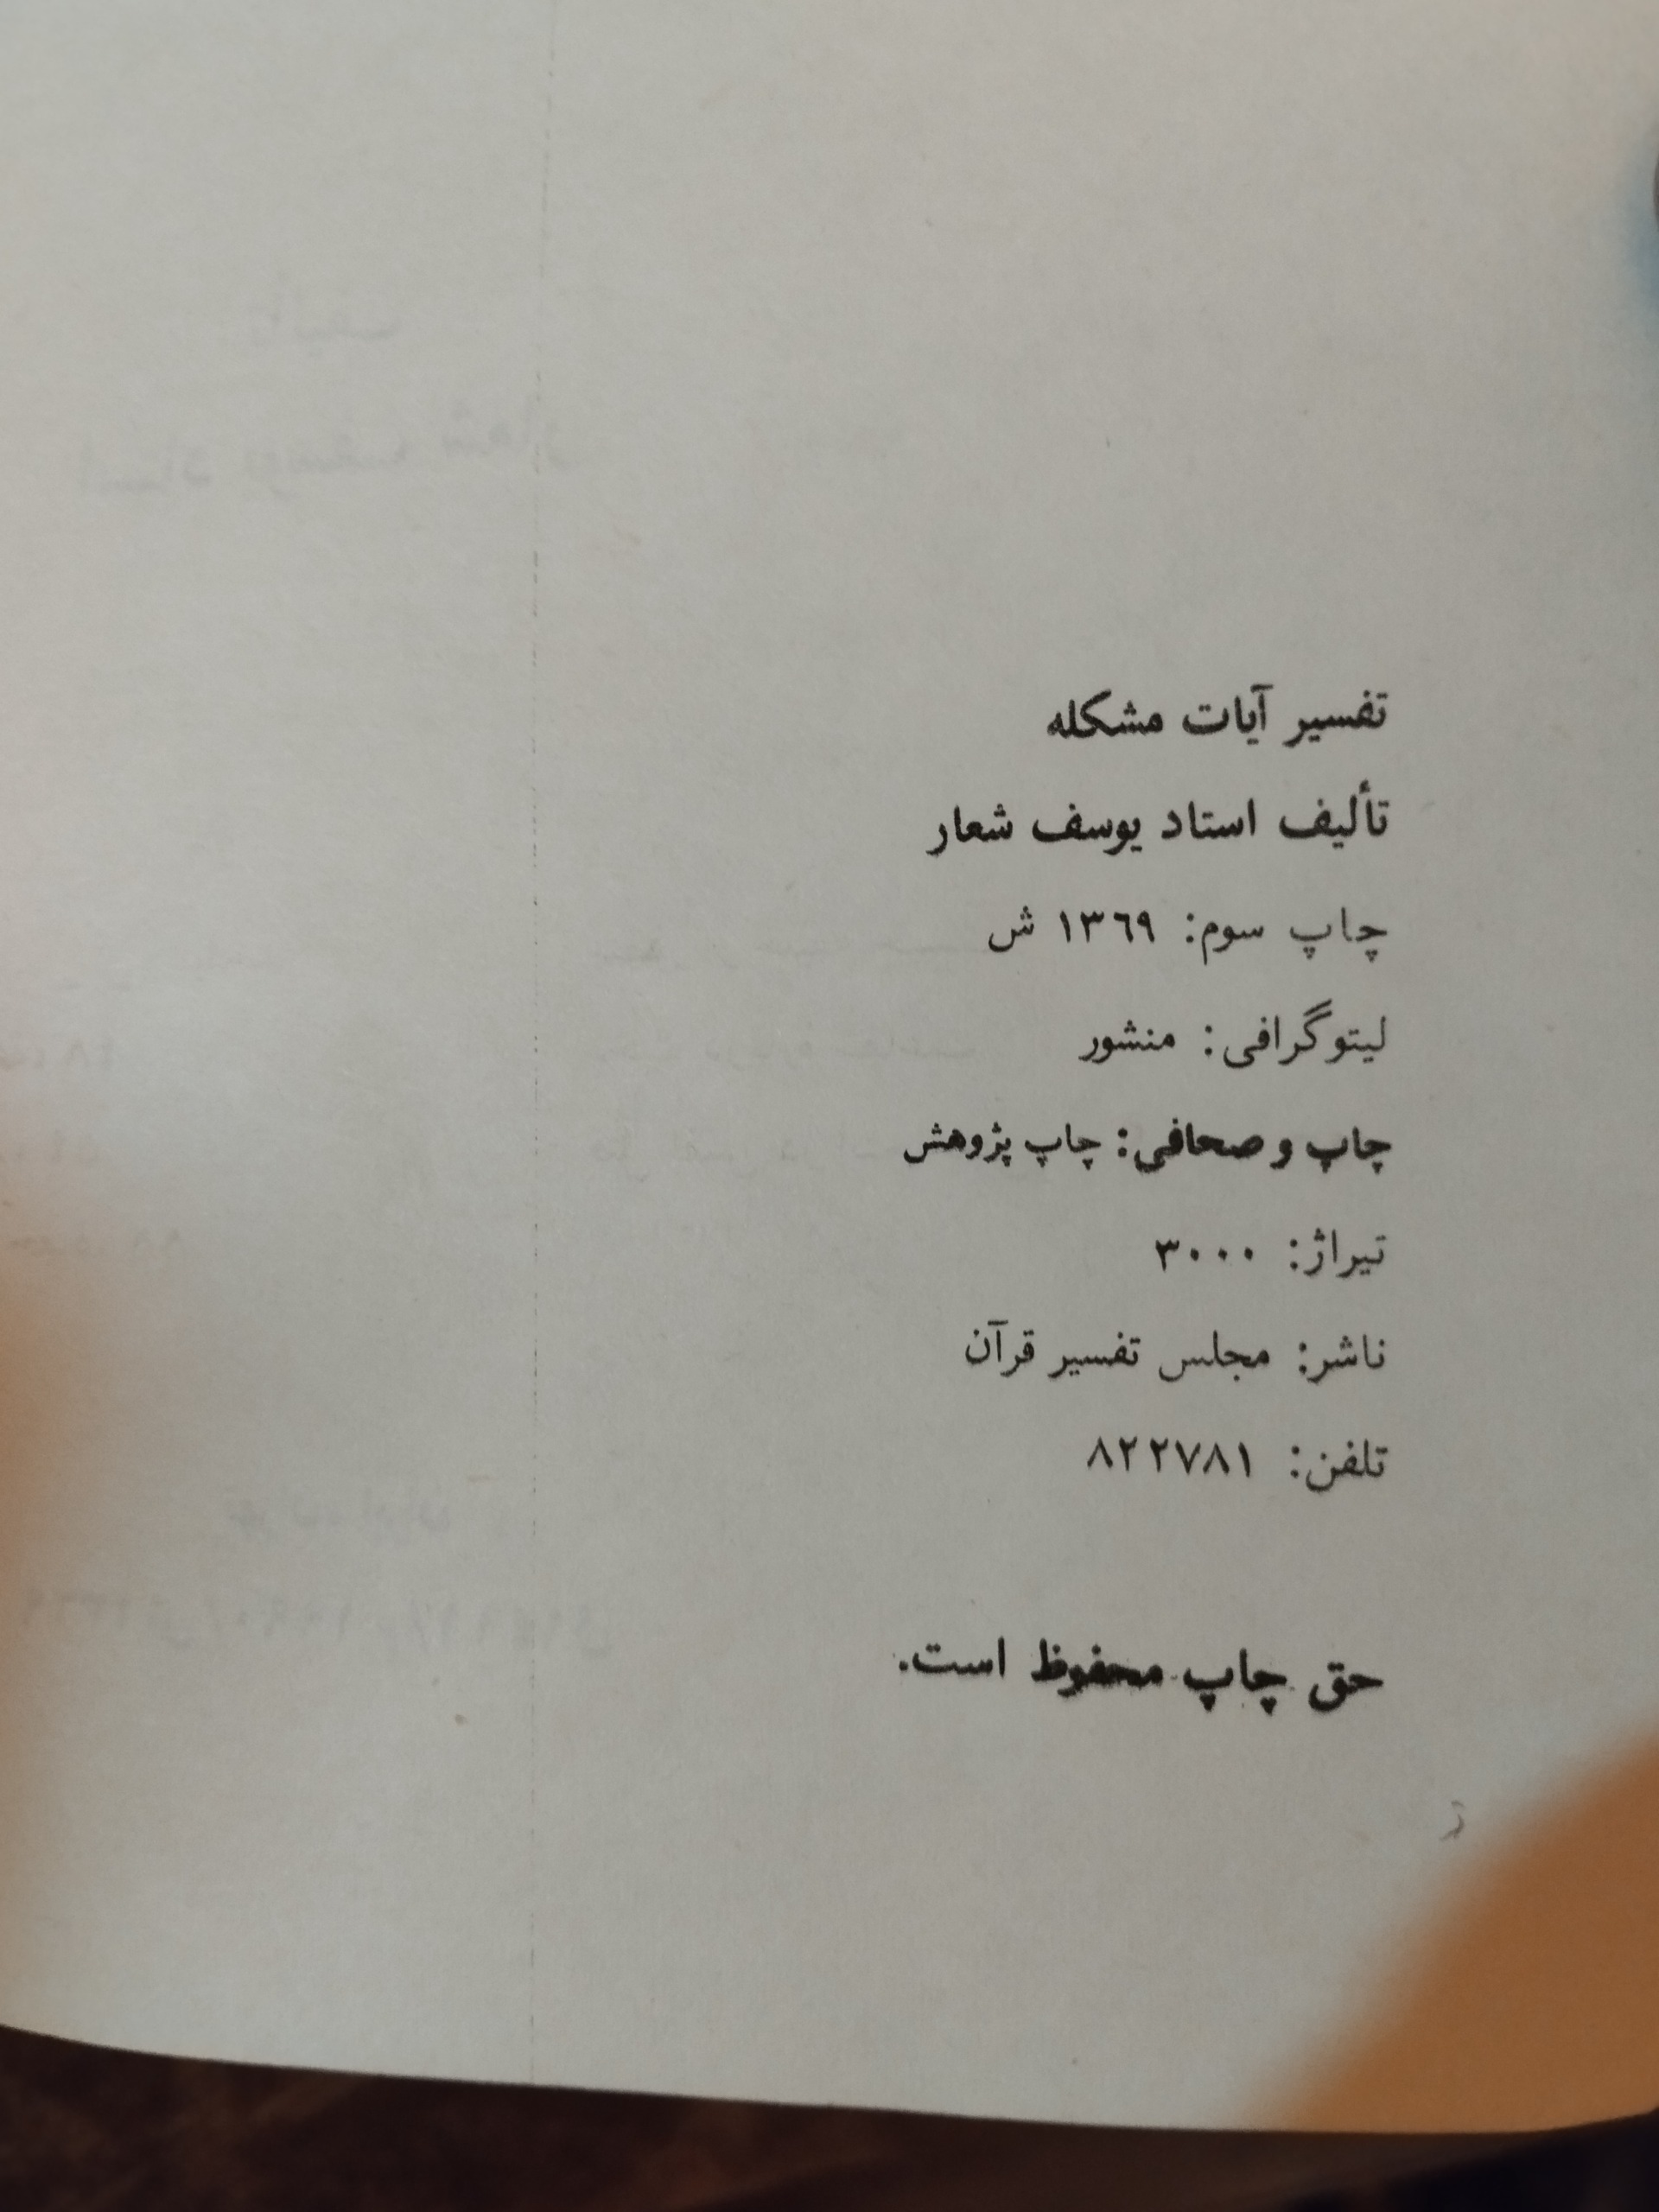 تفسیر آیات مشکله
تألیف استاد یوسف شعار
چاپ سوم: ۱۳٦۹ ش
لیتوگرافی: منشور
چاپ و صحافی: چاپ پژوهش
تیراژ: ۳۰۰۰
ناشر: مجلس تفسیر قرآن
تلفن: ۸۲۲۷۸۱
حق چاپ محفوظ است.